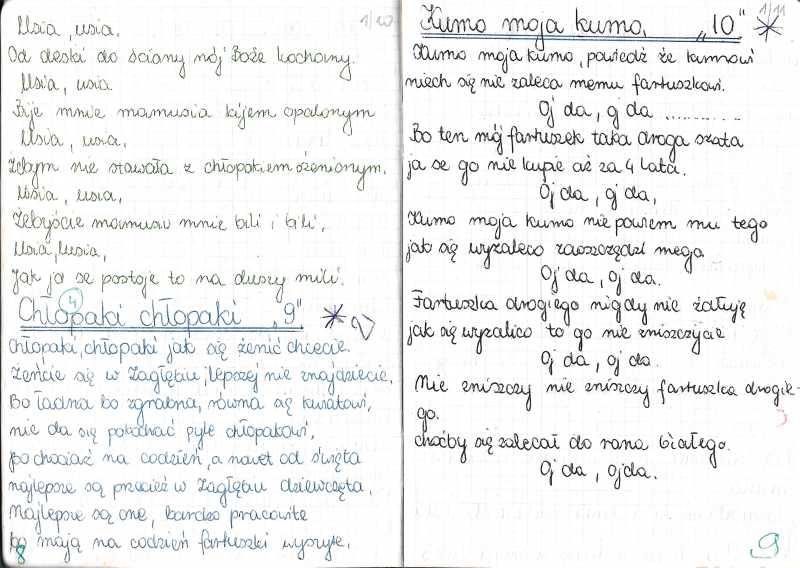 Usia, usia.
1/10
Od deski do ściany mój Boże kochany.
Usia, usia.
Bije mnie mamusia kijem opalonym
Usia, usia.
Żebym nie stawała z chłopakiem żenionym.
Usia, usia,
Żebyście mamusiu mnie bili i bili,
Usia, usia,
Jak ja se postoje to na duszy mili.
4
Chłopaki chłopaki „9"
Chłopaki, chłopaki jak się żenić chcecie.
Żeńcie się w Zagłębiu, lepszej nie znajdziecie.
Bo ładna bo zgrabna, równa się kwiatowi,
nie da się pokochać byle chłopakowi,
bo chociaż na codzień, a nawet od święta
najlepsze są przecież w Zagłębiu dziewczęta.
Najlepsze są one, bardzo pracowite
bo mają na codzień fartuszki wyszyte.
8
1/11
Kumo moja kumo. „10"
Kumo moja kumo, powiedz że kumowi
niech się nie zaleca memu fartuszkowi.
Oj da, oj da ............
Bo ten mój fartuszek taka droga szata
ja se go nie kupie aż za 4 lata.
Oj da, oj da,
Kumo moja kumo nie powiem mu tego
jak się wyzaleco zaoszczędzi mego
Oj da, oj da.
Fartuszka drogiego nigdy nie żałują
jak się wyzalico to go nie zniszczycie
Oj da, oj da.
Nie zniszczy nie zniszczy fartuszka drogie-
go.
choćby się zalecał do rana białego.
Oj da, oj da.
9